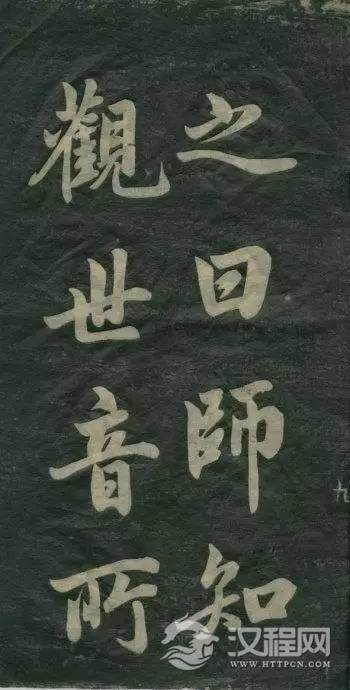 之曰師知
觀世音所
九
汉程网
WWW.HTTPCN.COM